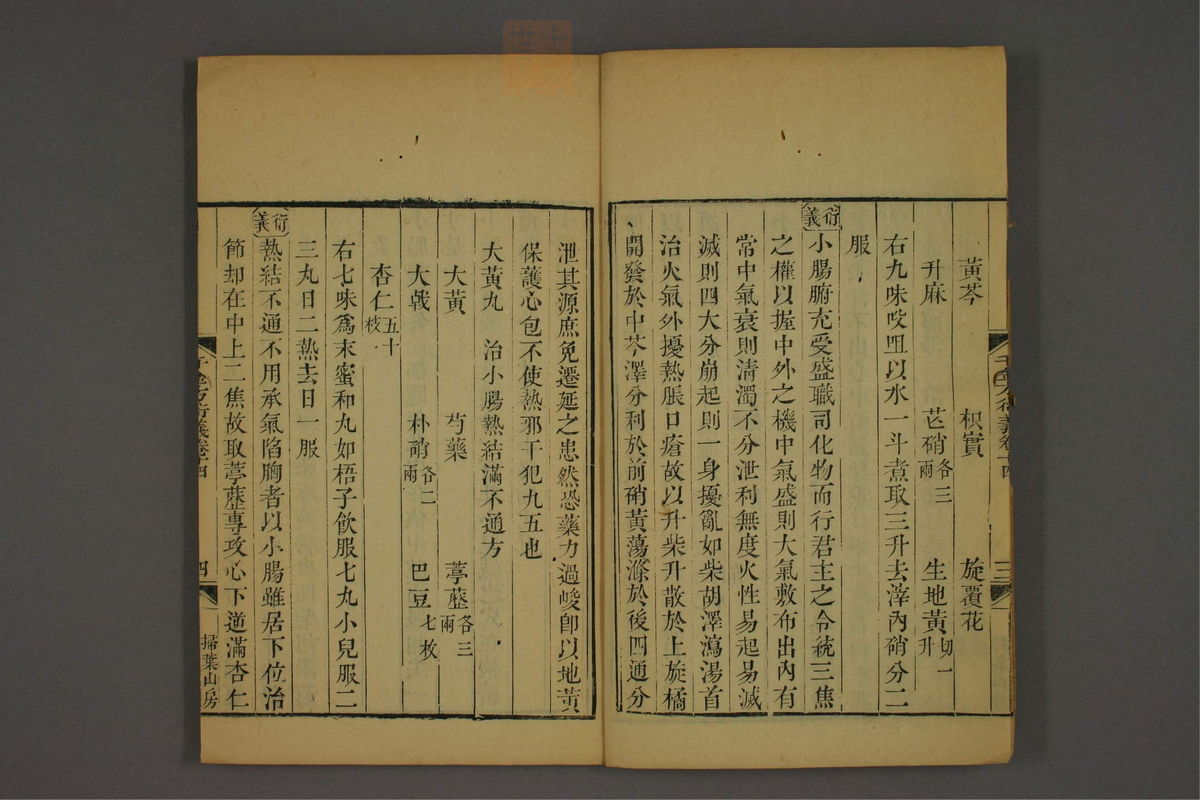 黃芩 枳實 旋覆花
升麻 芒硝各三兩 生地黃切一升
右九味㕮咀以水一斗煮取三升去滓內硝分二
服
衍義小腸腑充受盛職司化物而行君主之令統三焦
之權以握中外之機中氣盛則大氣敷布出內有
常中氣衰則清濁不分泄利無度火性易起易滅
滅則四大分崩起則一身擾亂如柴胡澤瀉湯首
治火氣外擾熱脹口瘡故以升柴升散於上旋橘
開發於中芩澤分利於前硝黃蕩滌於後四通分
泄其源庶免遷延之患然恐藥力過峻卽以地黃
保護心包不使熱邪干犯九五也
大黃丸 治小腸熱結滿不通方
大黃 芍藥 葶藶各三兩
大戟 朴硝各二兩 巴豆七枚
杏仁五十枝
右七味爲末蜜和丸如梧子飲服七丸小兒服二
三丸日二熱去日一服
衍義熱結不通不用承氣陷胸者以小腸雖居下位治
節却在中上二焦故取葶藶專攻心下逆滿杏仁
千金方衍義卷十四
四
掃葉山房